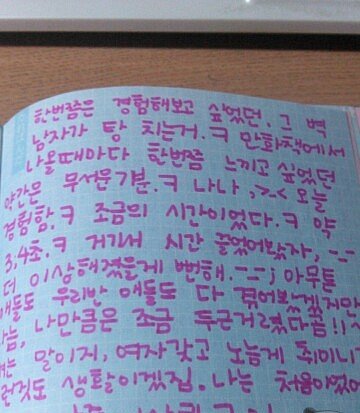 한번쯤은 경험해보고 싶었던. 그 벽
남자가 탕 치는거.ㅋ 만화책에서
나올때마다 한번쯤 느끼고 싶었던
약간은 무서운기분.ㅋ 나나 >.< 오늘
경험함.ㅋ 조금의 시간이었다.ㅋ 약
3,4초.ㅋ 거기서 시간 끌었어봤자, -_-
더 이상해졌을게 뻔해.-_-; 아무튼
애들도 우리반 애들도 다 겪어봤겠지만
나만큼은 조금 두근거렸다음!!
는 말이지, 여자갖고 노는게 취미니
런것도 생활이겠짐. 나는 처음이었